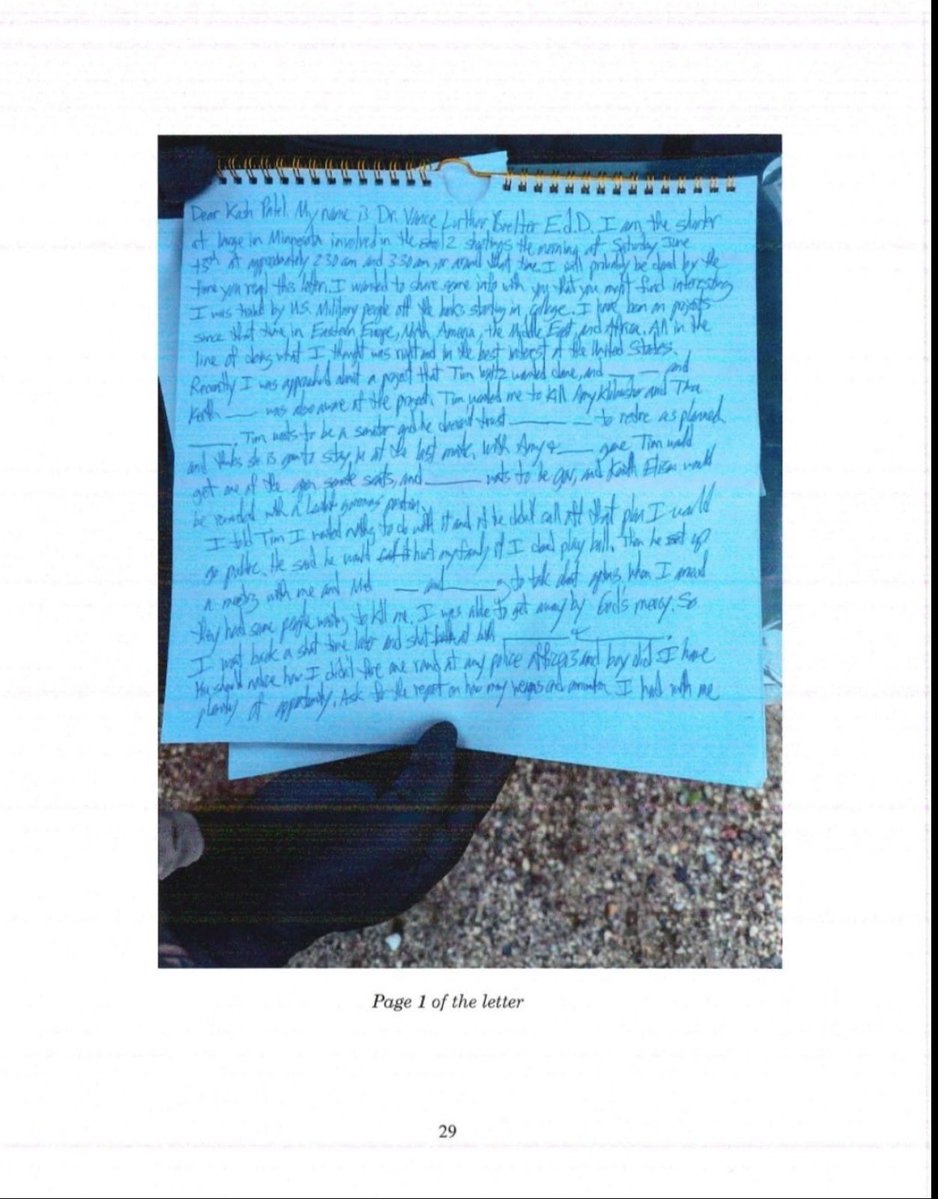 Dear Kash Patel. My name is Dr. Vance Luther Boelter Ed.D. I am the shooter
at large in Minnesota involved in the 2 shootings the morning of Saturday June
15th at approximately 2:30am and 3:30am or around that time. I will probably be dead by the
time you read this letter. I wanted to share some info with you that you might find interesting
I was trained by U.S. Military people off the books starting in college. I have been on projects
since that time in Eastern Europe, North America, the Middle East, and Africa. All in the
line of doing what I thought was right and in the best interest of the United States.
Recently I was approached about a project that Tim Waltz wanted done, and ____ __ and
Keith ___ was also aware of the project. Tim wanted me to kill Amy Klobuchar and
_____. Tim wants to be a senator and he doesn't trust ________ __ to retire as planned
and thinks she is gonna stay in at the last minute. With Amy & ___ gone Tim would
get one of the open senate seats, and ______ wants to be gov, and Keith would
be rewarded with a position.
I told Tim I wanted nothing to do with it and if he didn't call off that plan I would
go public. He said he would hurt my family if I didn't play ball. Then he set up
a meeting with me and ___ and ______ to talk about options when I arrived
they had some people waiting to kill me. I was able to get away by God's mercy. So
I went back a short time later and shot at both ________ & ________.
You should notice how I didn't fire one round at any police officers and boy did I have
plenty of opportunity. Ask for the report on how many weapons and ammunition I had with me
Page 1 of the letter
29